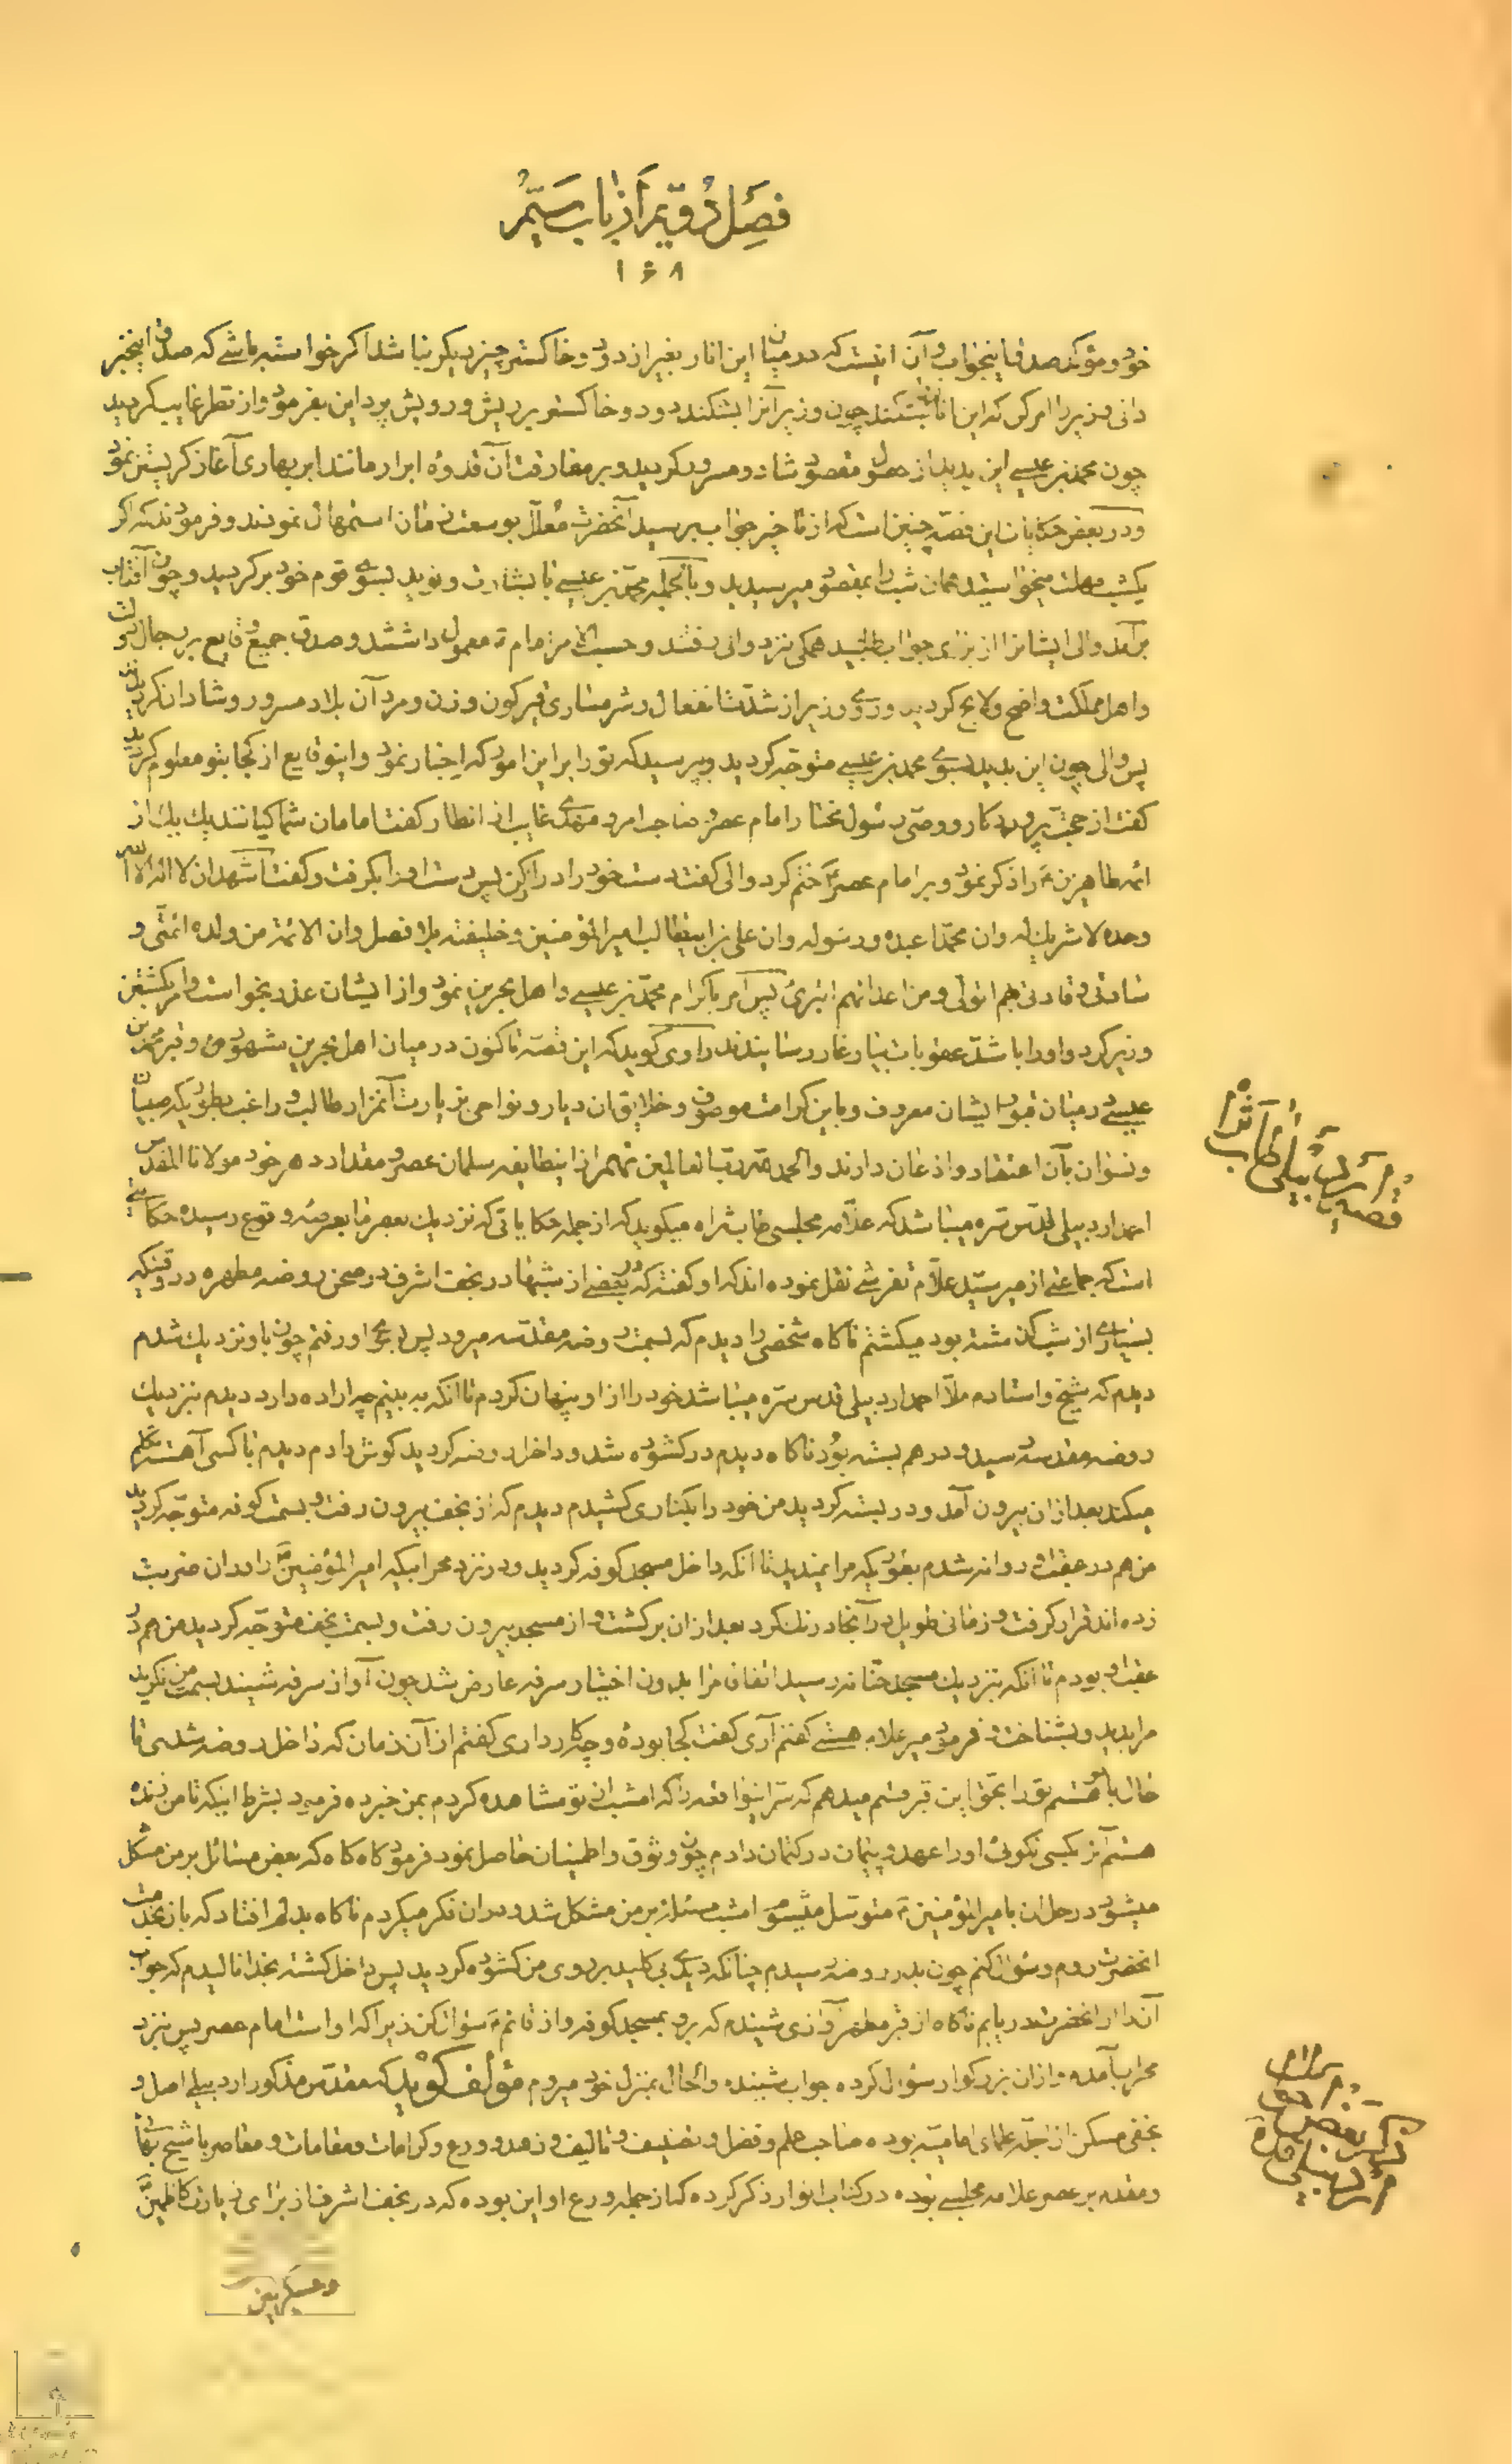 فصل دویم از باب ششم
۱۶۸
خود و مؤکد صدق اینجواب و آن اینست که در میان این انار بغیر از دود و خاکستر چیز دیگر نباشد اکر خواسته باشی که صدق اینخبر
دانی وزیر را امر کن که این انار بشکند چون وزیر آنرا بشکند دود و خاکستر بریش و رویش پرد این بفرمود و از نظر غایب کردید
چون محمد بن عیسی این بدید از حصول مقصود شاد و مسرور کردید و بر مفارقت آن قدوه ابرار مانند ابر بهاری آغاز کریستن نمود
و در بعض حکایات این قصه چنین است که از تاخیر جواب پرسید آنحضرت معلل بوسعت زمان استمهال نمودند و فرمودند که اکر
یکشب مهلت میخواستید همان شب بمقصود میرسیدید و بالجمله محمد بن عیسی با بشارت و نوید بسوی قوم خود برکردید و چون آفتاب
برآمد والی ایشانرا از برای جواب طلبید همکی نزد والی رفتند و حسب الامر امام ع معمول داشتند و صدق جمیع وقایع بر رجال دولت
و اهل مملکت واضح و لایح کردید و روی وزیر از شدت انفعال و شرمساری قیرکون و زن و مرد آن بلاد مسرور و شادان کردیدند
پس والی چون این بدید بسوی محمد بن عیسی متوجه کردید و پرسید که تو را بر این امور که اخبار نمود و اینوقایع از کجا بتو معلوم کردید
کفت از حجت پروردکار و وصی رسول مختار امام عصر و صاحب امر و مهدی غایب از انظار کفت امامان شما کیانند یك یك از
ائمه طاهرین ع را ذکر نمود و بر امام عصر ع ختم کرد والی کفت دست خود را دراز کن پس دست او را بکرفت و کفت اشهد ان لا اله الا الله
وحده لا شریك له و ان محمدا عبده و رسوله و ان علی بن ابیطالب امیر المؤمنین و خلیفته بلا فصل و ان الائمة من ولده ائمتی و
سادتی و قادتی بهم اتولی و من اعدائهم اتبرئ پس امر باکرام محمد بن عیسی و اهل بحرین نمود و از ایشان عذر بخواست و امر بکشتن
وزیر کرد و او را باشد عقوبات بنار و عار رسانیدند راوی کوید که این قصه تاکنون در میان اهل بحرین مشهور و قبر محمد بن
عیسی در میان قبور ایشان معروف و باین کرامت موصوف و خلایق ان دیار و نواحی بزیارت آنمزار طالب و راغب بطوریکه صبیان
و نسوان بآن اعتقاد و اذعان دارند و الحمد لله رب العالمین نهم از اینطایفه سلمان عصر و مقداد دهر خود مولانا المقدس
احمد اردبیلی قدس سره میباشد که علامه مجلسی طاب ثراه میکوید که از جمله حکایاتی که نزدیك بعصر ما بعرصه وقوع رسیده حکایتی
است که جماعتی از میر سید علام تفرشی نقل نموده اند که او کفته که در بعضی از شبها در نجف اشرف در صحن روضه مطهره در وقتیکه
بسیاری از شب کذشته بود میکشتم ناکاه شخصی را دیدم که بسمت روضه مقدسه میرود پس بسوی او رفتم چون باو نزدیك شدم
دیدم که شیخ و استادم ملا احمد اردبیلی قدس سره میباشد خود را از او پنهان کردم تا انکه به بینم چه اراده دارد دیدم بنزدیك
روضه مقدسه رسید و در هم بسته بود ناکاه دیدم در کشوده شد و داخل روضه کردید کوش دادم دیدم با کسی آهسته تکلم
میکند بعد از ان بیرون آمد و در بسته کردید من خود را بکناری کشیدم دیدم که از نجف بیرون رفت و بسمت کوفه متوجه کردید
من هم در عقب او روانه شدم بنحویکه مرا نمیدید تا انکه داخل مسجد کوفه کردید و در نزد محرابیکه امیر المؤمنین ع را در ان ضربت
زده اند قرار کرفت و زمانی طویل در آنجا درنك کرد بعد از ان برکشت و از مسجد بیرون رفت و بسمت نجف متوجه کردید من هم در
عقب او بودم تا انکه بنزدیك مسجد حنانه رسید اتفاقا مرا بدون اختیار سرفه عارض شد چون آواز سرفه شنید بسمت من نکرید
مرا بدید و بشناخت فرمود میر علام هستی کفتم آری کفت کجا بودهٔ و چکار داری کفتم از آن زمان که داخل روضه شدی تا
حال با تو هستم تو را بحق این قبر قسم میدهم که سر اینواقعه را که امشب از تو مشاهده کردم بمن خبر ده فرمود بشرط اینکه تا من زنده
هستم آنرا بکسی نکوئی او را عهد و پیمان در کتمان دادم چون وثوق و اطمینان حاصل نمود فرمود کاه کاه که بعض مسائل بر من مشکل
میشود در حل ان بامیر المؤمنین ع متوسل میشوم امشب مسئله بر من مشکل شد و در ان فکر میکردم ناکاه بدلم افتاد که باز بخدمت
انحضرت روم و سؤال کنم چون بدر روضه رسیدم چنانکه دیدی بی کلید بروی من کشوده کردید پس داخل کشته بخدا نالیدم که جواب
آنرا از انحضرت دریابم ناکاه از قبر مطهر آوازی شنیدم که برو بمسجد کوفه و از قائم ع سؤال کن زیرا که او است امام عصر پس بنزد
محراب آمده و از ان بزرکوار سؤال کرده جواب شنیده و الحال بمنزل خود میروم مؤلف کوید که مقدس مذکور اردبیلی اصل و
نجفی مسکن از اجله علمای امامیه بوده صاحب علم و فضل و تصنیف و تالیف و زهد و ورع و کرامات و مقامات و معاصر با شیخ بهائی
و مقدم بر عصر علامه مجلسی بوده در کتاب انوار ذکر کرده که از جمله ورع او این بوده که در نجف اشرف از برای زیارت کاظمین ع
و عسکریین
قصه اردبیلی طاب ثراه
ذکر بعض
اردبیلی